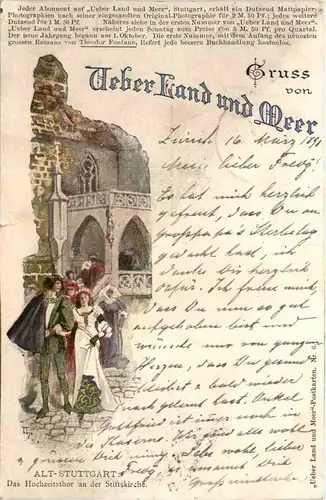 Jeder Abonnent auf „Ueber Land und Meer", Stuttgart, erhält ein Dutzend Mattpapier-
Photographien nach seiner eingesandten Original-Photographie für 2 M. 50 Pf.; jedes weitere
Dutzend für 1 M. 50 Pf. Näheres siehe in der ersten Nummer von „Ueber Land und Meer".
„Ueber Land und Meer" erscheint jeden Sonntag zum Preise von 3 M. 50 Pf. pro Quartal.
Der neue Jahrgang begann am 1. Oktober. Die erste Nummer, mit dem Anfang des neuesten
grossen Romans von Theodor Fontane, liefert jede bessere Buchhandlung kostenlos.
Gruss
von
Ueber Land und Meer
Zürich 16 März
Mein lieber Fredy!
Es hat mich herzlich
gefreut, dass Du an
Grosspapa's Sterbetag
gedacht hast, ich
danke Dir herzlich
dafür. Ich freue mich,
dass Du nun so gut
aufgehoben bist und
wünsche nur von ganzem
Herzen, dass Du gesund
bleibst & bald wieder
nach gelernt hast. Onkel
Gottfried ist immer noch in
der Kaserne. Wir sind alle wohl
wohl, lieber
Fredy
ALT-STUTTGART
Das Hochzeitsthor an der Stiftskirche.
„Ueber Land und Meer"-Postkarten. Nr. 6.